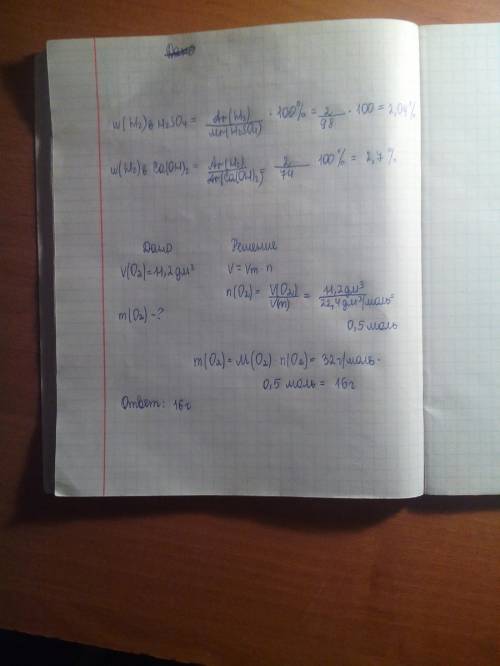 Дано
w(H₂) в H₂SO₄ = Ar(H₂) / Mr(H₂SO₄) · 100% = 2 / 98 · 100 = 2,04%
w(H₂) в Ca(OH)₂ = Ar(H₂) / Ar(Ca(OH)₂) = 2 / 74 100% = 2,7%
Дано Решение
V(O₂) = 11,2 дм³ V = Vm · n
n(O₂) = V(O₂) / V(m) = 11,2 дм³ / 22,4 дм³/моль =
m(O₂) - ? 0,5 моль
m(O₂) = M(O₂) · n(O₂) = 32 г/моль ·
0,5 моль = 16г
Ответ: 16г